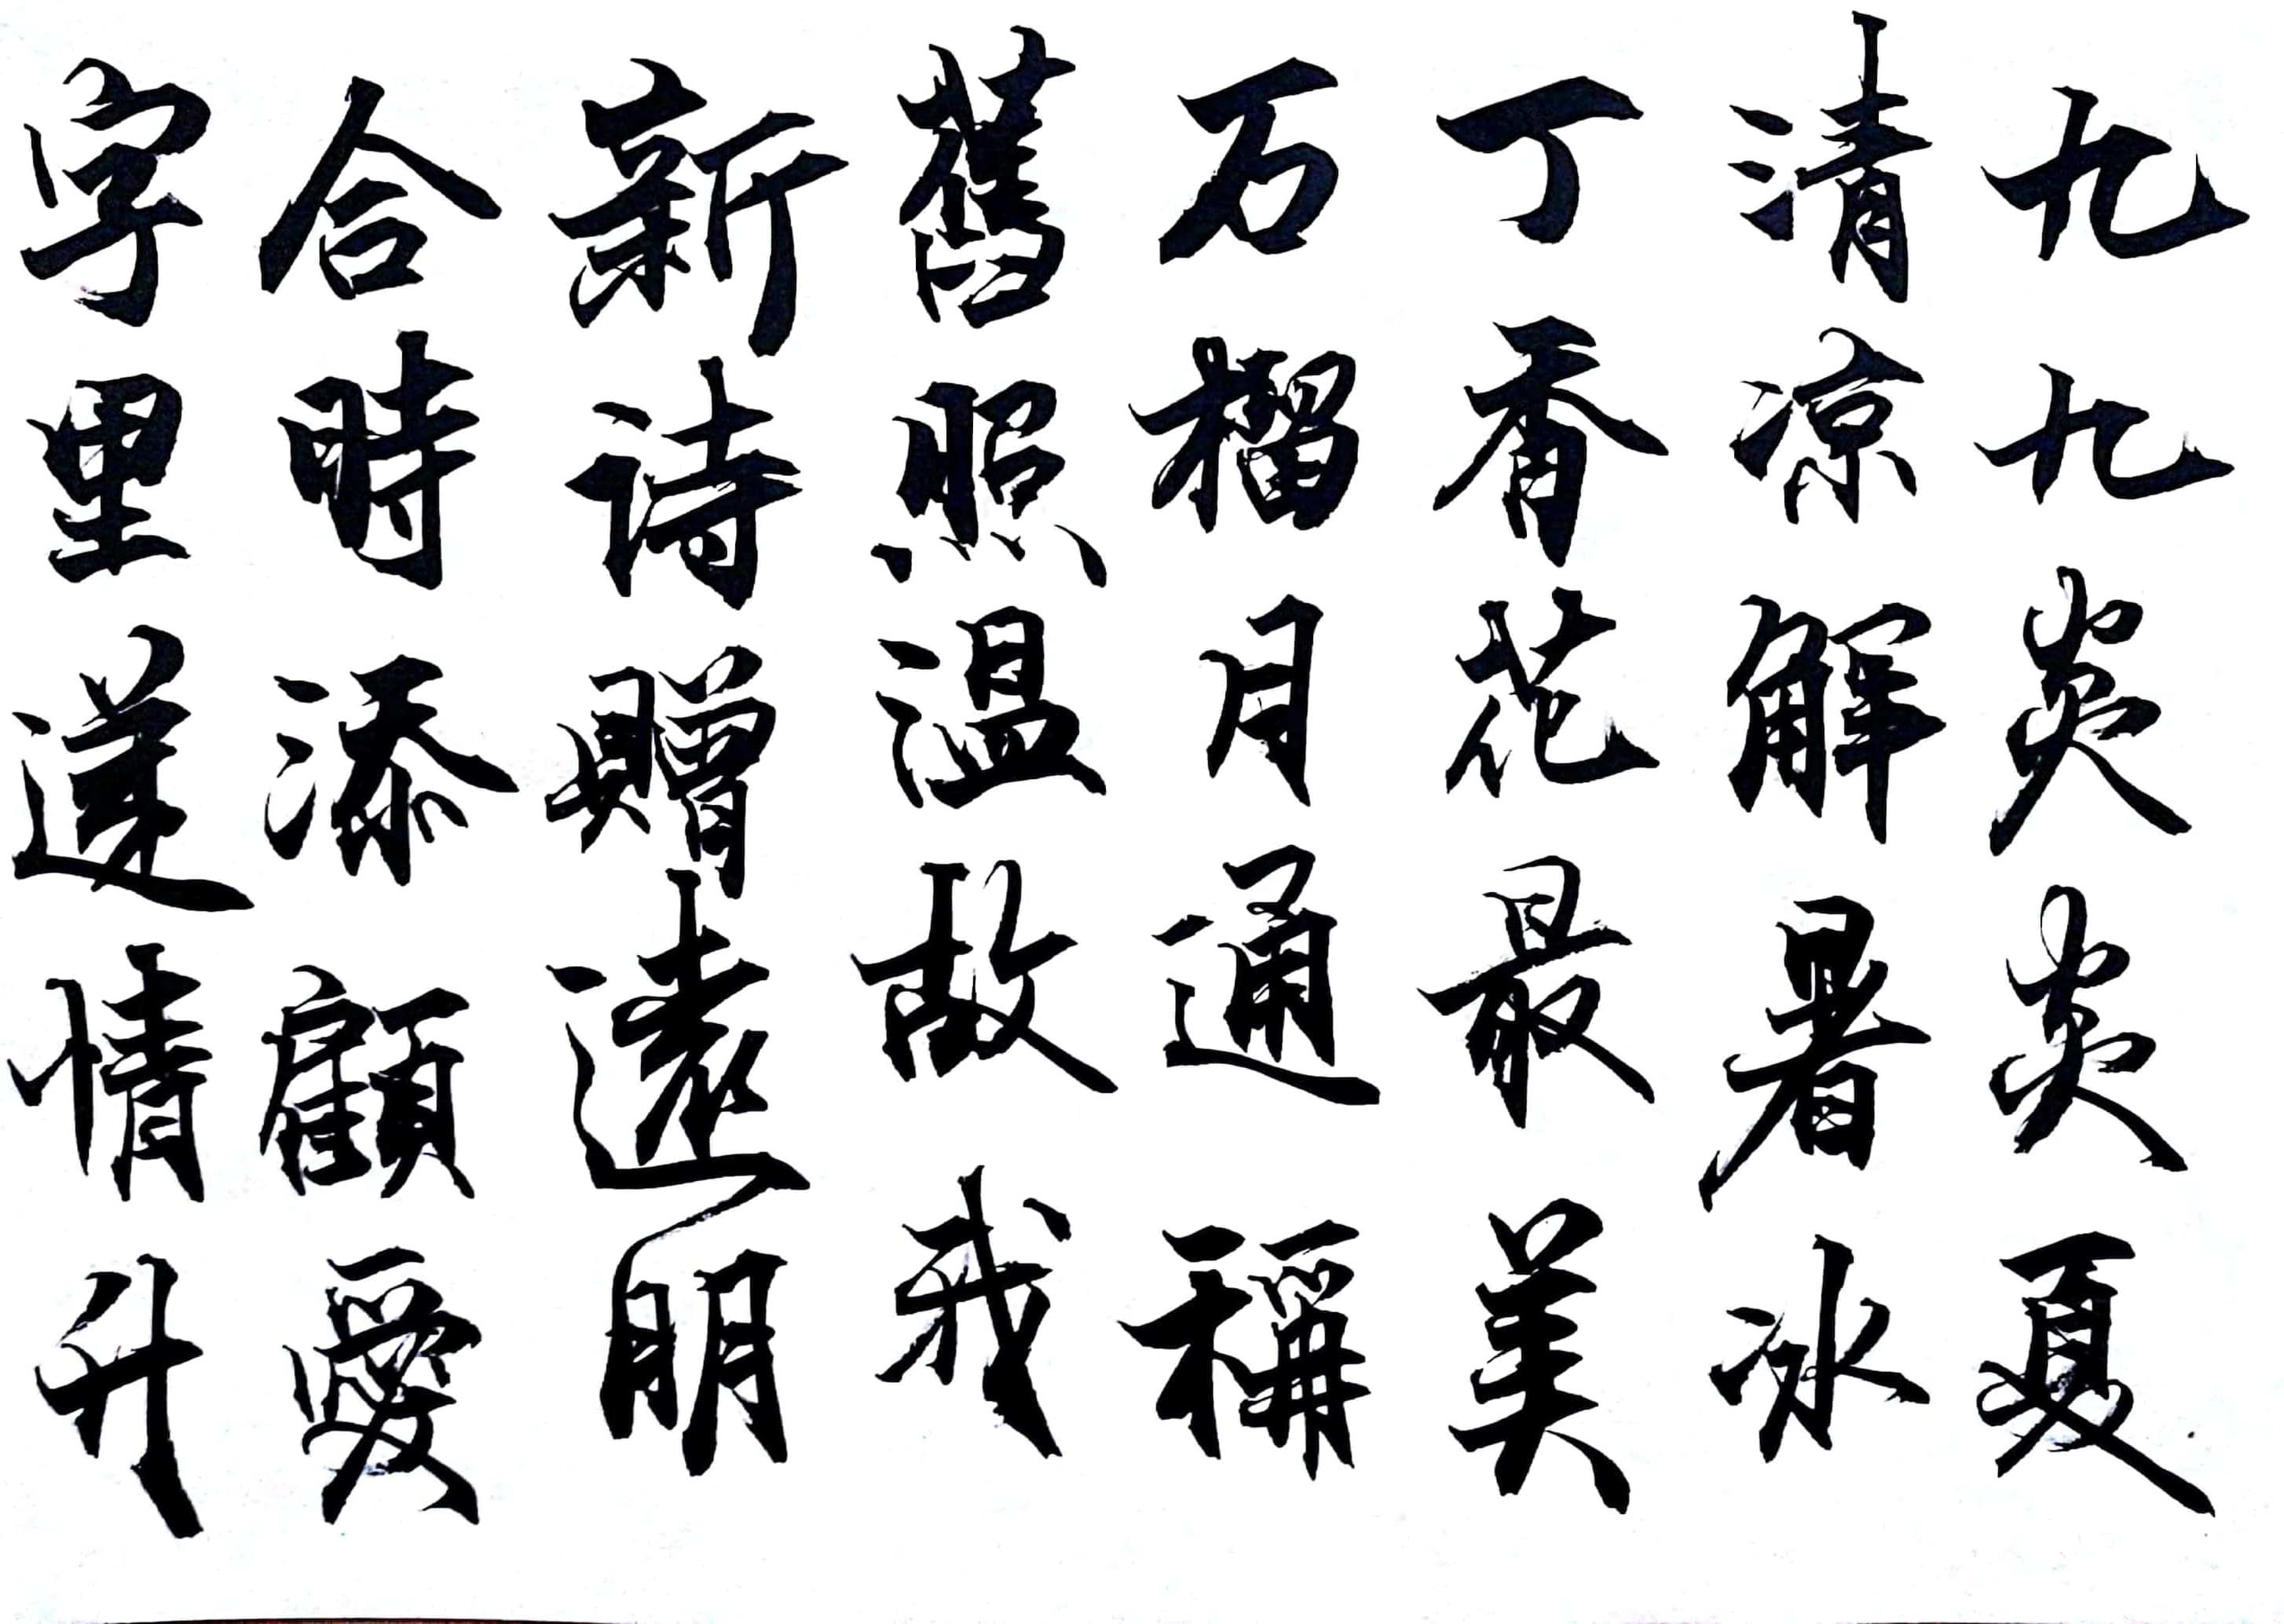 九九炎炎夏
清凉解暑冰
丁香花最美
石榴月通稱
舊照温故我
新诗赠遠朋
合時添顧愛
字里送情升